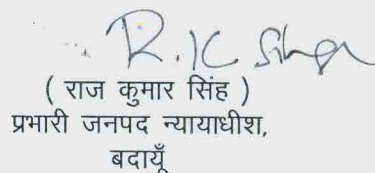 R.K Singh
( राज कुमार सिंह )
प्रभारी जनपद न्यायाधीश,
बदायूँ